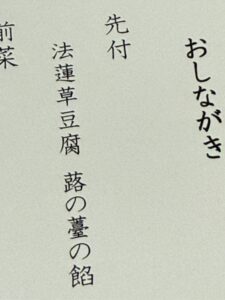 おしながき
先付
法蓮草豆腐 蕗の薹の餡
前菜